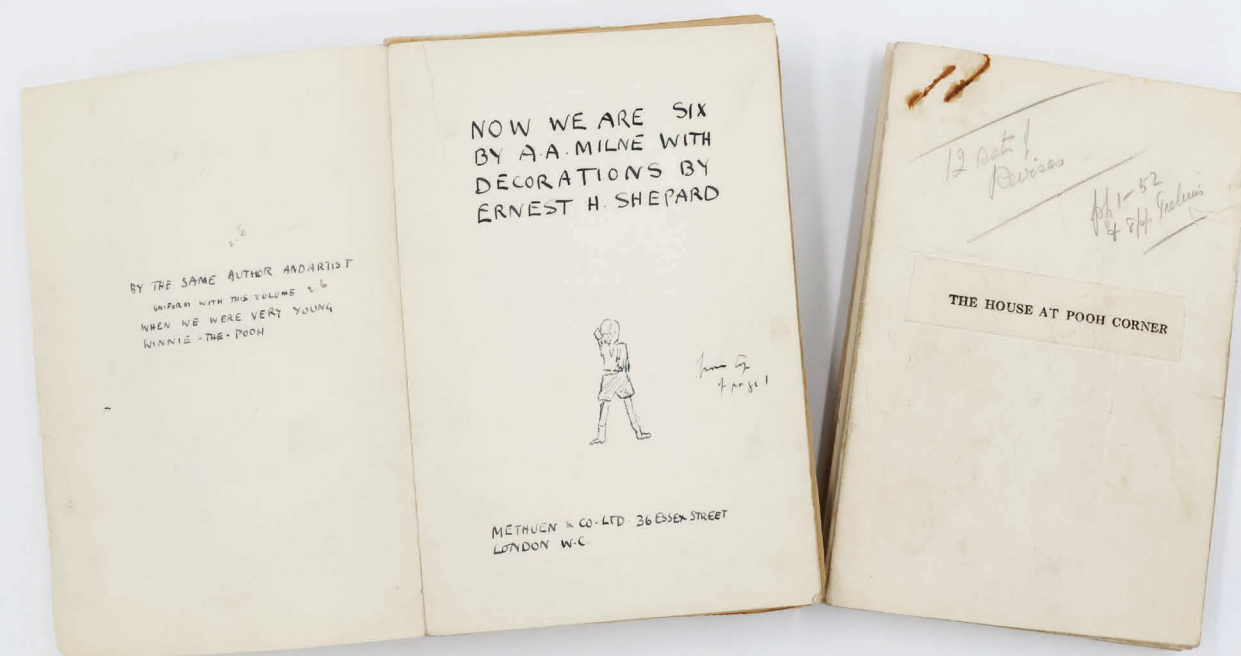 BY THE SAME AUTHOR AND ARTIST
UNIFORM WITH THIS VOLUME
WHEN WE WERE VERY YOUNG
WINNIE-THE-POOH
NOW WE ARE SIX
BY A.A. MILNE WITH
DECORATIONS BY
ERNEST H. SHEPARD
from top
of page 1
METHUEN & CO. LTD. 36 ESSEX STREET
LONDON W.C.
12
Revises
pp 1-52
& 8pp. Prelims
THE HOUSE AT POOH CORNER